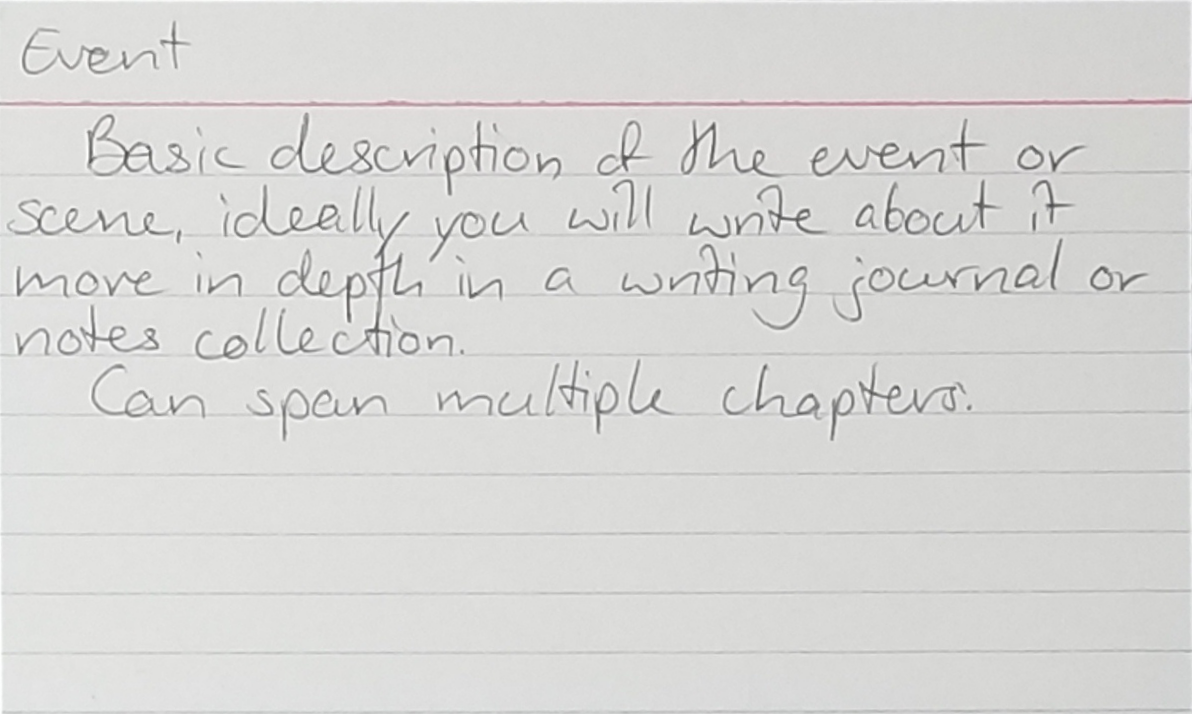 Event
Basic description of the event or
scene, ideally you will write about it
more in depth in a writing journal or
notes collection.
Can span multiple chapters.